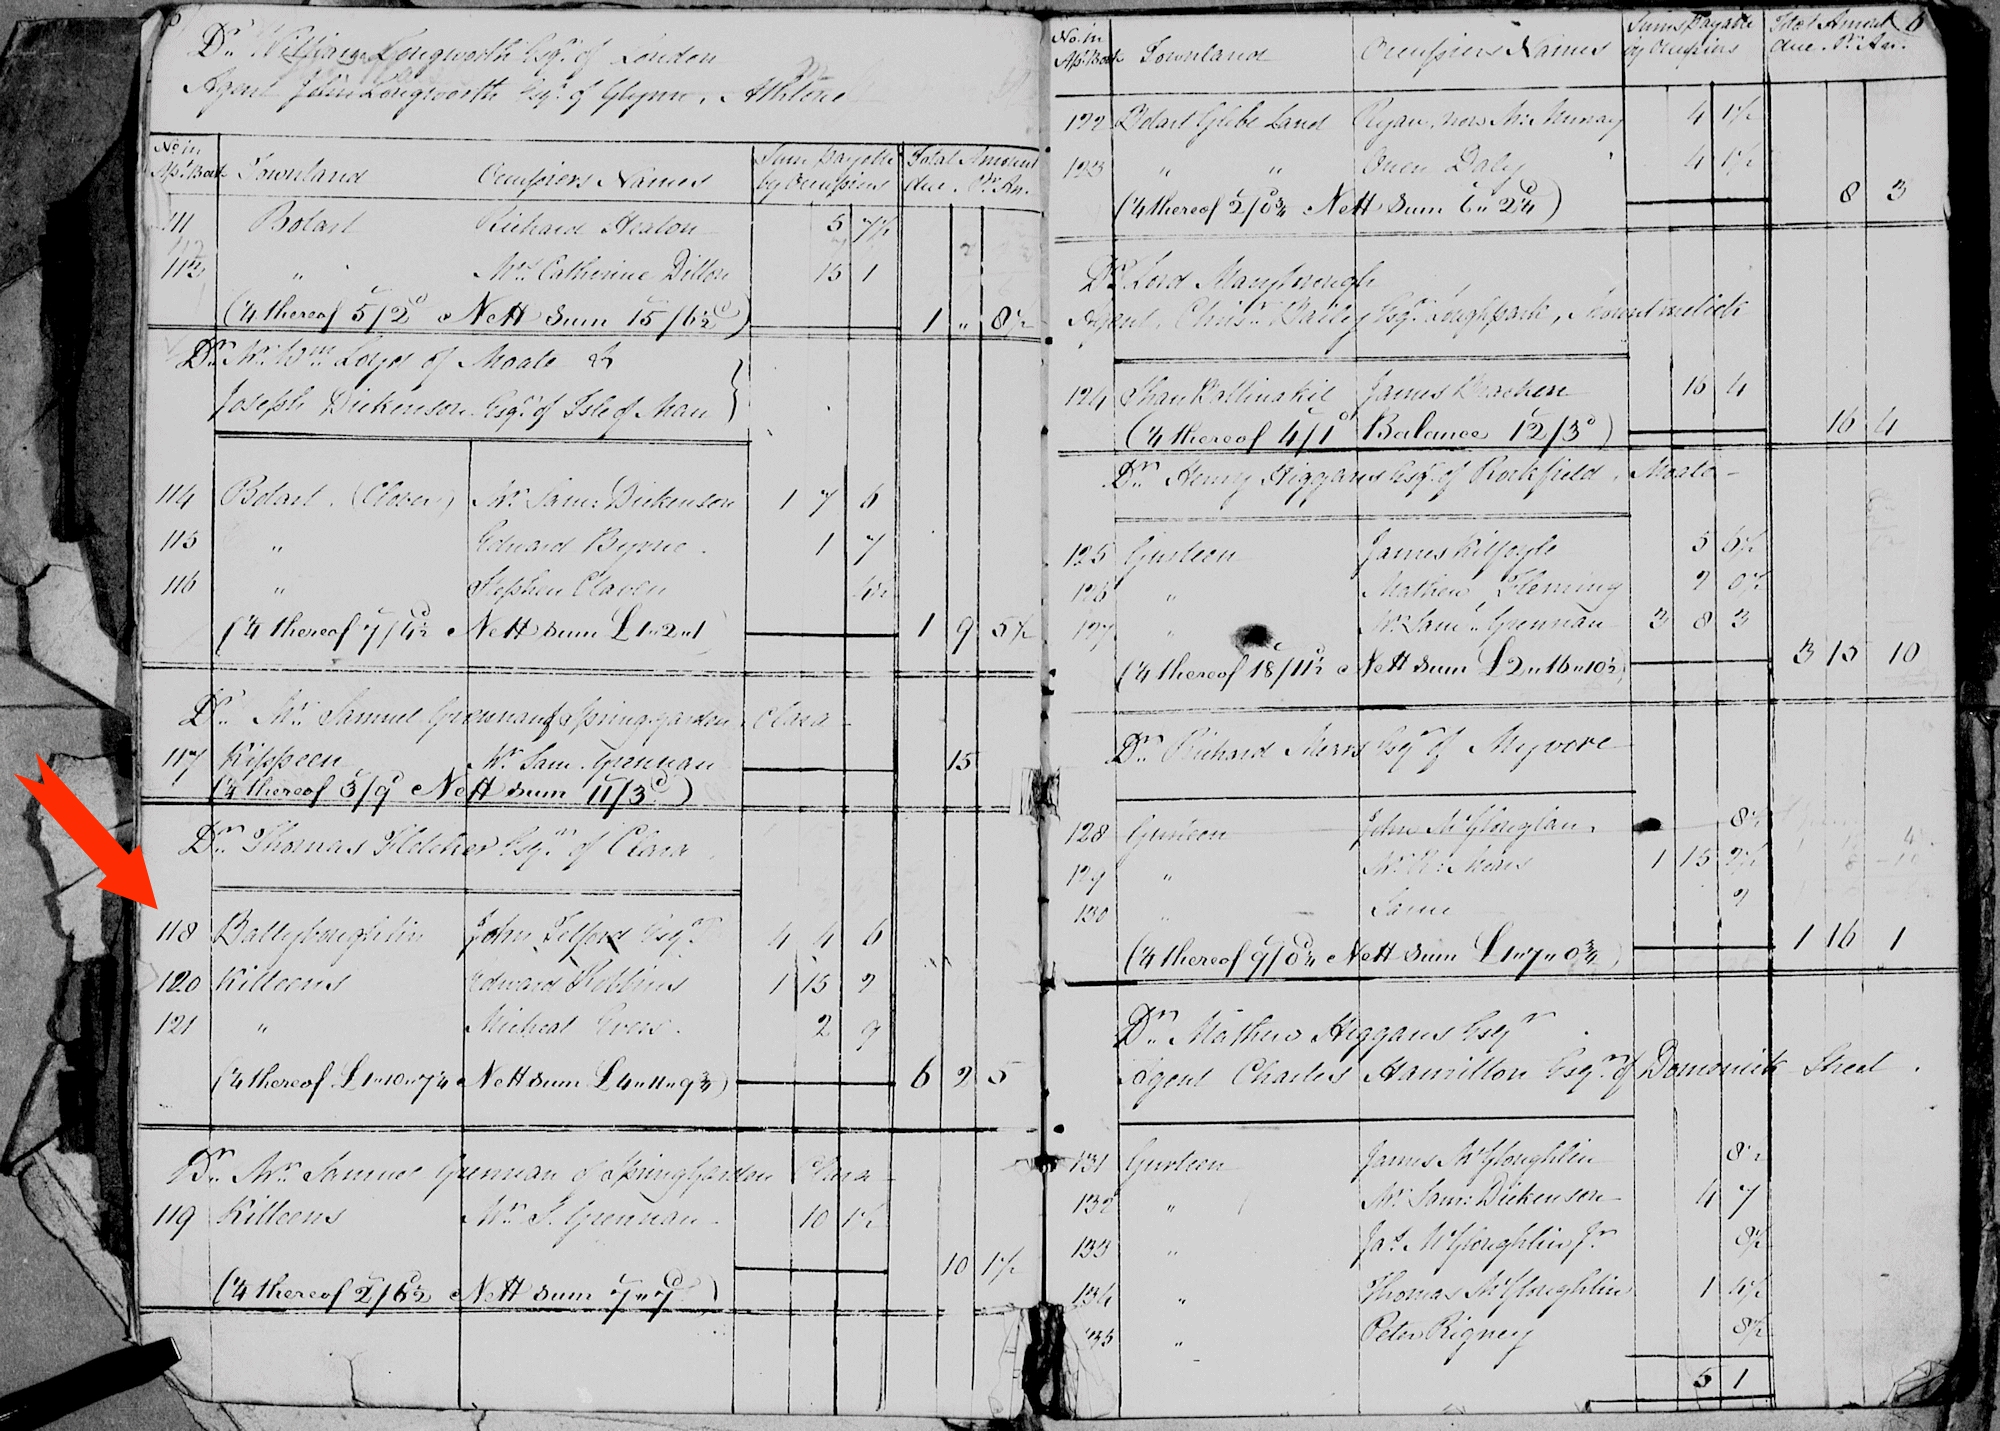 Dr. William Longworth Esqr. of London
Agent John Longworth Esqr. of Glynn, Athlone
No. in Ap: Book Townland Occupiers Names Sum payable by Occupiers Total Amount due Pr. An.
111 Bolart Richard Heaton 5 7½
113 " Mrs. Catherine Dillon 15 1
(¼ thereof 5/2d Nett Sum 15/6½d) 1 " 8½
Dr. Mr. Wm. Loyd of Moate &
Joseph Dickenson Esqr. of Isle of Man
114 Bolart (Clover) Mr. Saml. Dickenson 1 7 6
115 " Edward Byrne 1 7
116 " Stephen Claven 4½
(¼ thereof 7/4½d Nett Sum £1"2"1) 1 9 5½
Dr. Mr. Samuel Grennan of Springgarden, Clara
117 Kippeen Mr. Sam. Grennan 15
(¼ thereof 3/9d Nett Sum 11/3d)
Dr. Thomas Fletcher Esqr. of Clara
118 Ballyboughlin John Telford Esqr. 4 4 6
120 Killeens Edward Robbins 1 15 2
121 " Micheal Evers 2 9
(¼ thereof £1"10"7¼ Nett Sum £4"11"9¾) 6 2 5
Dr. Mr. Samuel Grennan of Spring Garden Clara
119 Killeens Mr. S. Grennan 10 1½
10 1½
(¼ thereof 2/6½ Nett Sum 7"7d)
6
No. in Ap: Book Townland Occupiers Names Sums payable by Occupiers Total Amount due Pr. An.
122 Bolart Glebe Land Ryan, now Mr. Murray 4 1½
123 " " Owen Daly 4 1½
(¼ thereof 2/0¾ Nett Sum 6"2¼d) 8 3
Dr. Lord Maryborough
Agent, Chrisr. Bailey Esqr. Loughpark, Mountmelick
124 Shan Ballinakil James Bracken 16 4
(¼ thereof 4/1d Balance 12/3d) 16 4
Dr. Henry Higgans Esqr. of Rockfield, Moate
125 Gurteen James Kilfoyle 5 6½
126 " Mathew Fleming 2 0½
127 " Mr. Saml. Grennan 3 8 3
(¼ thereof 18/11½ Nett Sum £2"16"10½) 3 15 10
Dr. Richard Mears Esqr. of Myvore
128 Gurteen John McGloughlan 8½
129 " Mr. R. Mears 1 15 2½
130 " Same 2
(¼ thereof 9/0¼d Nett Sum £1"7"0¾) 1 16 1
Dr. Mathew Higgans Esqr.
Agent Charles Hamilton Esqr. of Domonick Street
131 Gurteen James McGloughlin 8½
132 " Mr. Saml. Dickenson 4 7
133 " Jas. McGloughlin Jr. 8½
134 " Thomas McGloughlin 1 4½
135 " Peter Rigney 8½
5 1